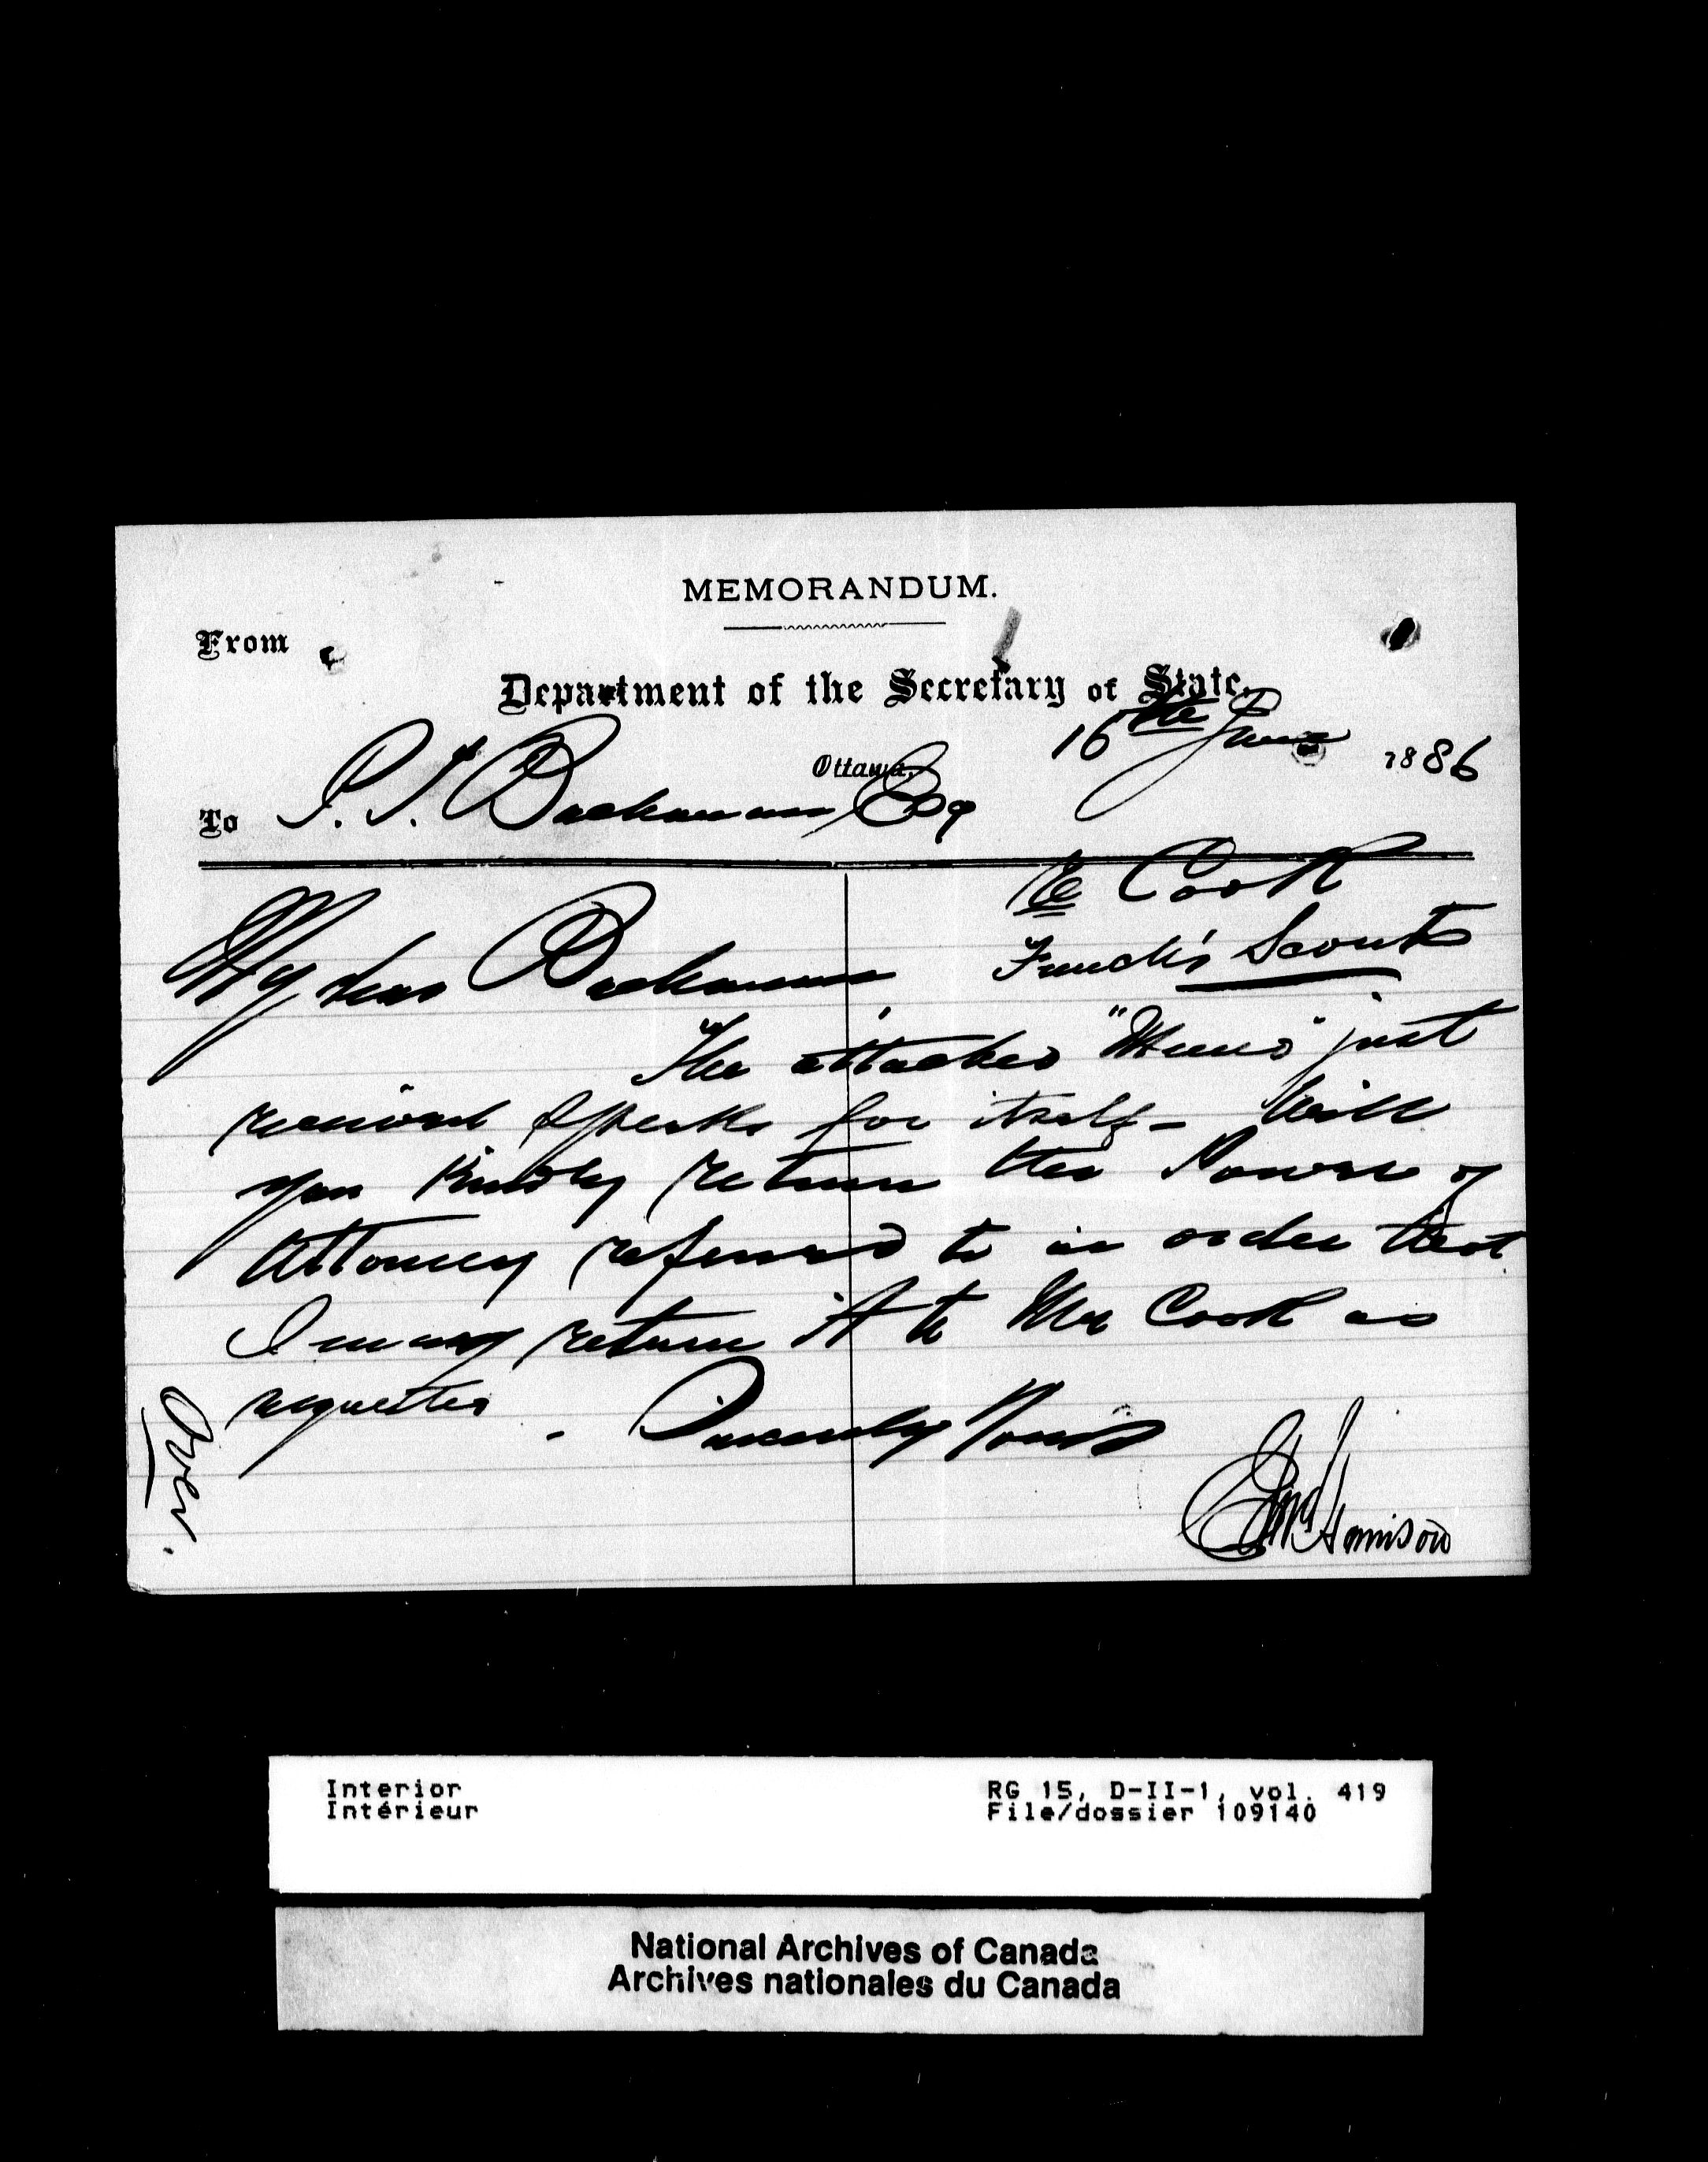 MEMORANDUM.
From
Department of the Secretary of State.
Ottawa, 16th June 1886
To P. J. Buckman Esq
Re Cook
French's Scouts
My dear Buckman
The attached "Memo" just
received speaks for itself - Will
you kindly return the Power of
Attorney referred to in order that
I may return it to Mr Cook as
requested. Sincerely Yours
Harrison
Over.
Interior
Intérieur
RG 15, D-II-1, vol. 419
File/dossier 109140
National Archives of Canada
Archives nationales du Canada